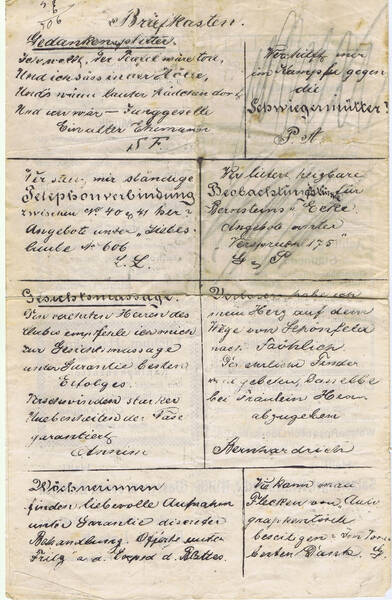 506
Briefkasten.
Gedankensplitter.
Ich wollt, der Teufel wäre tot,
Und ich säss in der Hölle,
Und's wären lauter Mädchen dort
Und ich wär — Junggeselle
Ein alter Ehemann
F.
Wer hilft mir
im Kampfe gegen
die
Schwiegermütter?
P. A.
Wer mir ständige
Telephonverbindung
zwischen No 40 & 41 her?
Angebote unter "Liebes-
laube No 606
L. L.
Wer liefert heizbare
Beobachtung für
Bernsteins Ecke
Angebote unter
175
G P
Gesichtsmassage.
Den verehrten Herren des
Clubs empfehle ich mich
zur Gesichtsmassage
unter Garantie besten
Erfolges.
Verschwinden starker
Unebenheiten der Nase
garantiert
Verloren habe ich
mein Herz auf dem
Wege von Schönfeld
nach Fröhlich.
Der ehrliche Finder
wird gebeten, dasselbe
bei Fräulein
abzugeben
Bernhardrich
Wöchnerinnen
finden liebevolle Aufnahme
unter Garantie discreter
Behandlung. Offerte unter
"Fritz" a. d. Exped. d. Blattes.
Wie kann man
Flecken von Auto-
graphentinte
beseitigen? Im Vor-
herein Dank G.